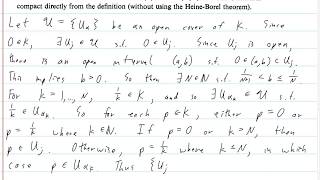 compact directly from the definition (without using the Heine-Borel theorem).
Let U = {Uα} be an open cover of K. Since
0∈K, ∃ Uj ∈ U s.t. 0∈Uj. Since Uj is open,
there is an open interval (a,b) s.t. 0∈(a,b)⊂Uj
This implies b>0. So then ∃ N∈ℕ s.t. 1/(N+1) < b ≤ 1/N
For k=1,..,N, 1/k ∈ K, and so ∃ Uαk ∈ U s.t.
1/k ∈ Uαk. So for each p∈K, either p=0 or
p = 1/k where k∈ℕ. If p=0 or k>N, then
p∈Uj. Otherwise, p = 1/k where k≤N, in which
case p∈Uαk. Thus {Uj